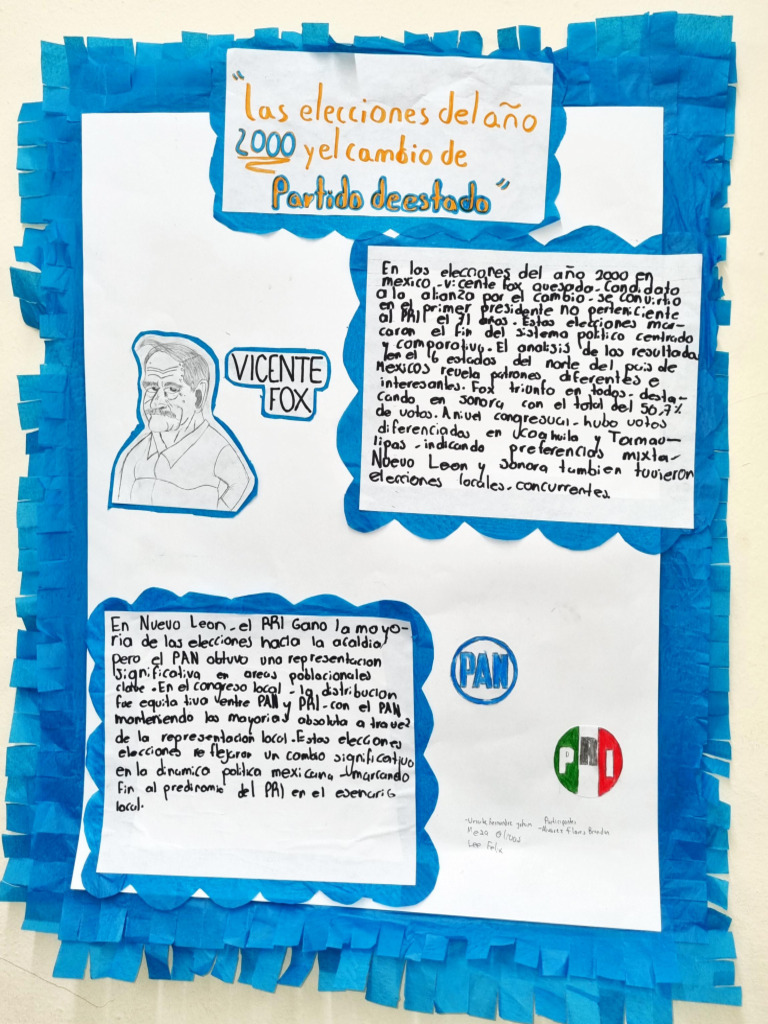 "Las elecciones del año
2000 y el cambio de
Partido de estado"
En los elecciones del año 2000 en
mexico - vicente Fox quesado - Candidato
a la alianza por el cambio - se convirtio
en el primer presidente no perteniciente
al PRI el 71 años. Estas elecciones mar-
caron el fin del sistema politico centrado
y comparativo. El analisis de los resultados
en el 6 estados del norte del pais de
Mexicos revela patrones diferentes e
interesantes. Fox triunfo en todos - desta-
cando en sonora con el total del 50,7%
de votos. A nivel congresual - hubo votos
diferenciados en Koahuila y Tamau-
lipas - indicando preferencias mixta-
Nuevo Leon y sonora tambien tuvieron
elecciones locales - concurrentes
VICENTE
FOX
En Nuevo Leon - el PRI Gano la mayo-
ria de las elecciones hacia la acaldia
pero el PAN obtuvo una representacion
significativa en areas poblacionales
clave. En el congreso local - la distribucion
fue equitativo entre PAN y PRI - con el PAN
manteniendo las mayorias absoluta a travez
de la representacion local. Estas elecciones
elecciones reflejaron un cambio significativo
en la dinamica politica mexicana - marcando
fin al predinamio del PRI en el esenario
local.
PAN
PRI
Participantes
Flores Brandon
Meza
Lee Felix